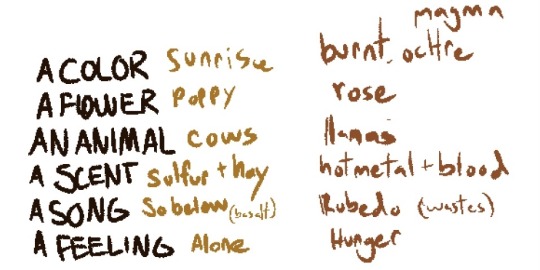 magma
A COLOR sunrise burnt ochre
A FLOWER poppy rose
AN ANIMAL cows llamas
A SCENT sulfur + hay hotmetal + blood
A SONG So below (basalt) Rubedo (wastes)
A FEELING Alone Hunger